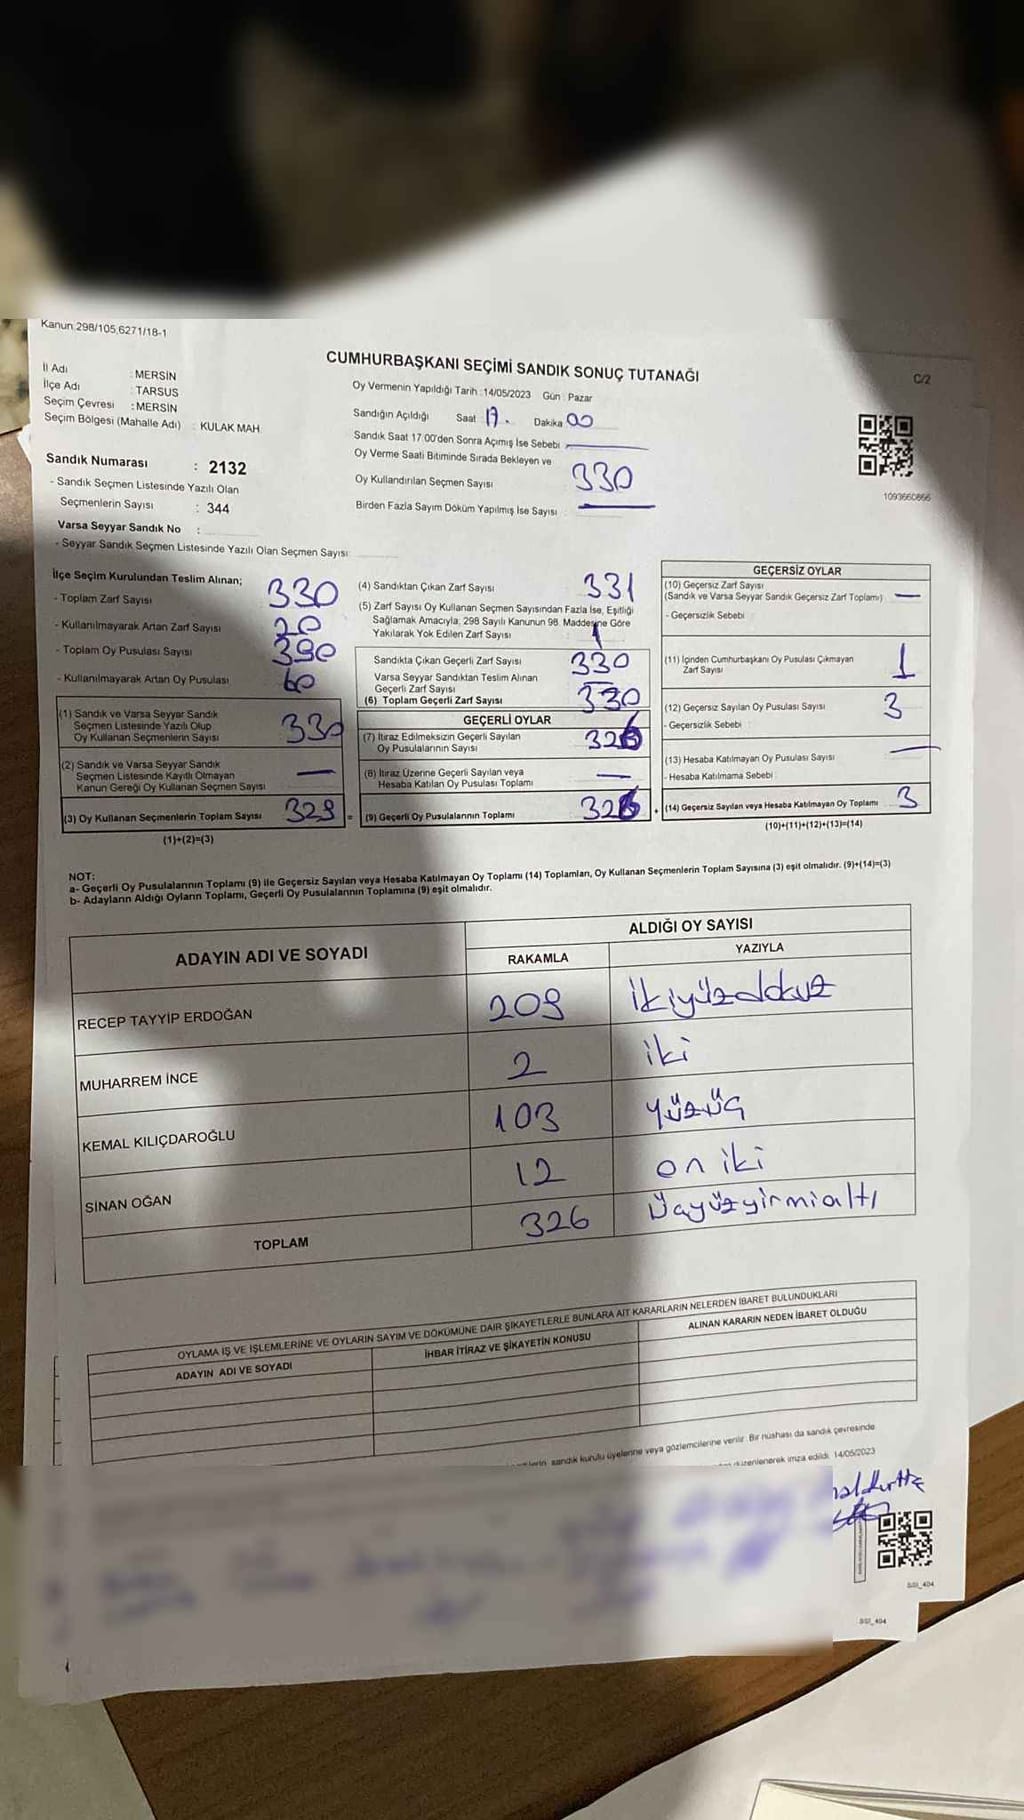 Kanun 298/105,6271/18-1
CUMHURBAŞKANI SEÇİMİ SANDIK SONUÇ TUTANAĞI
C/2
İl Adı : MERSİN
İlçe Adı : TARSUS
Seçim Çevresi : MERSİN
Seçim Bölgesi (Mahalle Adı) : KULAK MAH.
Oy Vermenin Yapıldığı Tarih :14/05/2023 Gün : Pazar
Sandığın Açıldığı Saat 17. Dakika 00
Sandık Saat 17:00'den Sonra Açımış İse Sebebi
Oy Verme Saati Bitiminde Sırada Bekleyen ve
Oy Kullandırılan Seçmen Sayısı 330
Birden Fazla Sayım Döküm Yapılmış İse Sayısı :
1093660866
Sandık Numarası : 2132
- Sandık Seçmen Listesinde Yazılı Olan
Seçmenlerin Sayısı : 344
Varsa Seyyar Sandık No :
- Seyyar Sandık Seçmen Listesinde Yazılı Olan Seçmen Sayısı
İlçe Seçim Kurulundan Teslim Alınan;
- Toplam Zarf Sayısı 330
- Kullanılmayarak Artan Zarf Sayısı 20
- Toplam Oy Pusulası Sayısı 390
- Kullanılmayarak Artan Oy Pusulası 60
(1) Sandık ve Varsa Seyyar Sandık
Seçmen Listesinde Yazılı Olup
Oy Kullanan Seçmenlerin Sayısı 330
(2) Sandık ve Varsa Seyyar Sandık
Seçmen Listesinde Kayıtlı Olmayan
Kanun Gereği Oy Kullanan Seçmen Sayısı —
(3) Oy Kullanan Seçmenlerin Toplam Sayısı 329 =
(1)+(2)=(3)
(4) Sandıktan Çıkan Zarf Sayısı 331
(5) Zarf Sayısı Oy Kullanan Seçmen Sayısından Fazla İse, Eşitliği
Sağlamak Amacıyla, 298 Sayılı Kanunun 98. Maddesine Göre
Yakılarak Yok Edilen Zarf Sayısı 1
Sandıkta Çıkan Geçerli Zarf Sayısı 330
Varsa Seyyar Sandıktan Teslim Alınan
Geçerli Zarf Sayısı —
(6) Toplam Geçerli Zarf Sayısı 330
GEÇERLİ OYLAR
(7) İtiraz Edilmeksizin Geçerli Sayılan
Oy Pusulalarının Sayısı 326
(8) İtiraz Üzerine Geçerli Sayılan veya
Hesaba Katılan Oy Pusulası Toplamı —
(9) Geçerli Oy Pusulalarının Toplamı 326 +
GEÇERSİZ OYLAR
(10) Geçersiz Zarf Sayısı
(Sandık ve Varsa Seyyar Sandık Geçersiz Zarf Toplamı) —
- Geçersizlik Sebebi :
(11) İçinden Cumhurbaşkanı Oy Pusulası Çıkmayan
Zarf Sayısı 1
(12) Geçersiz Sayılan Oy Pusulası Sayısı 3
- Geçersizlik Sebebi :
(13) Hesaba Katılmayan Oy Pusulası Sayısı —
- Hesaba Katılmama Sebebi :
(14) Geçersiz Sayılan veya Hesaba Katılmayan Oy Toplamı 3
(10)+(11)+(12)+(13)=(14)
NOT:
a- Geçerli Oy Pusulalarının Toplamı (9) ile Geçersiz Sayılan veya Hesaba Katılmayan Oy Toplamı (14) Toplamları, Oy Kullanan Seçmenlerin Toplam Sayısına (3) eşit olmalıdır. (9)+(14)=(3)
b- Adayların Aldığı Oyların Toplamı, Geçerli Oy Pusulalarının Toplamına (9) eşit olmalıdır.
ADAYIN ADI VE SOYADI
ALDIĞI OY SAYISI
RAKAMLA YAZIYLA
RECEP TAYYİP ERDOĞAN 209 ikiyüzdokuz
MUHARREM İNCE 2 iki
KEMAL KILIÇDAROĞLU 103 yüzüç
SİNAN OĞAN 12 on iki
TOPLAM 326 üçyüzyirmialtı
OYLAMA İŞ VE İŞLEMLERİNE VE OYLARIN SAYIM VE DÖKÜMÜNE DAİR ŞİKAYETLERLE BUNLARA AİT KARARLARIN NELERDEN İBARET BULUNDUKLARI
ADAYIN ADI VE SOYADI İHBAR İTİRAZ VE ŞİKAYETİN KONUSU ALINAN KARARIN NEDEN İBARET OLDUĞU
sandık kurulu üyelerine veya gözlemcilerine verilir. Bir nüshası da sandık çevresinde
düzenlenerek imza edildi. 14/05/2023
SSI_404
SSI_404